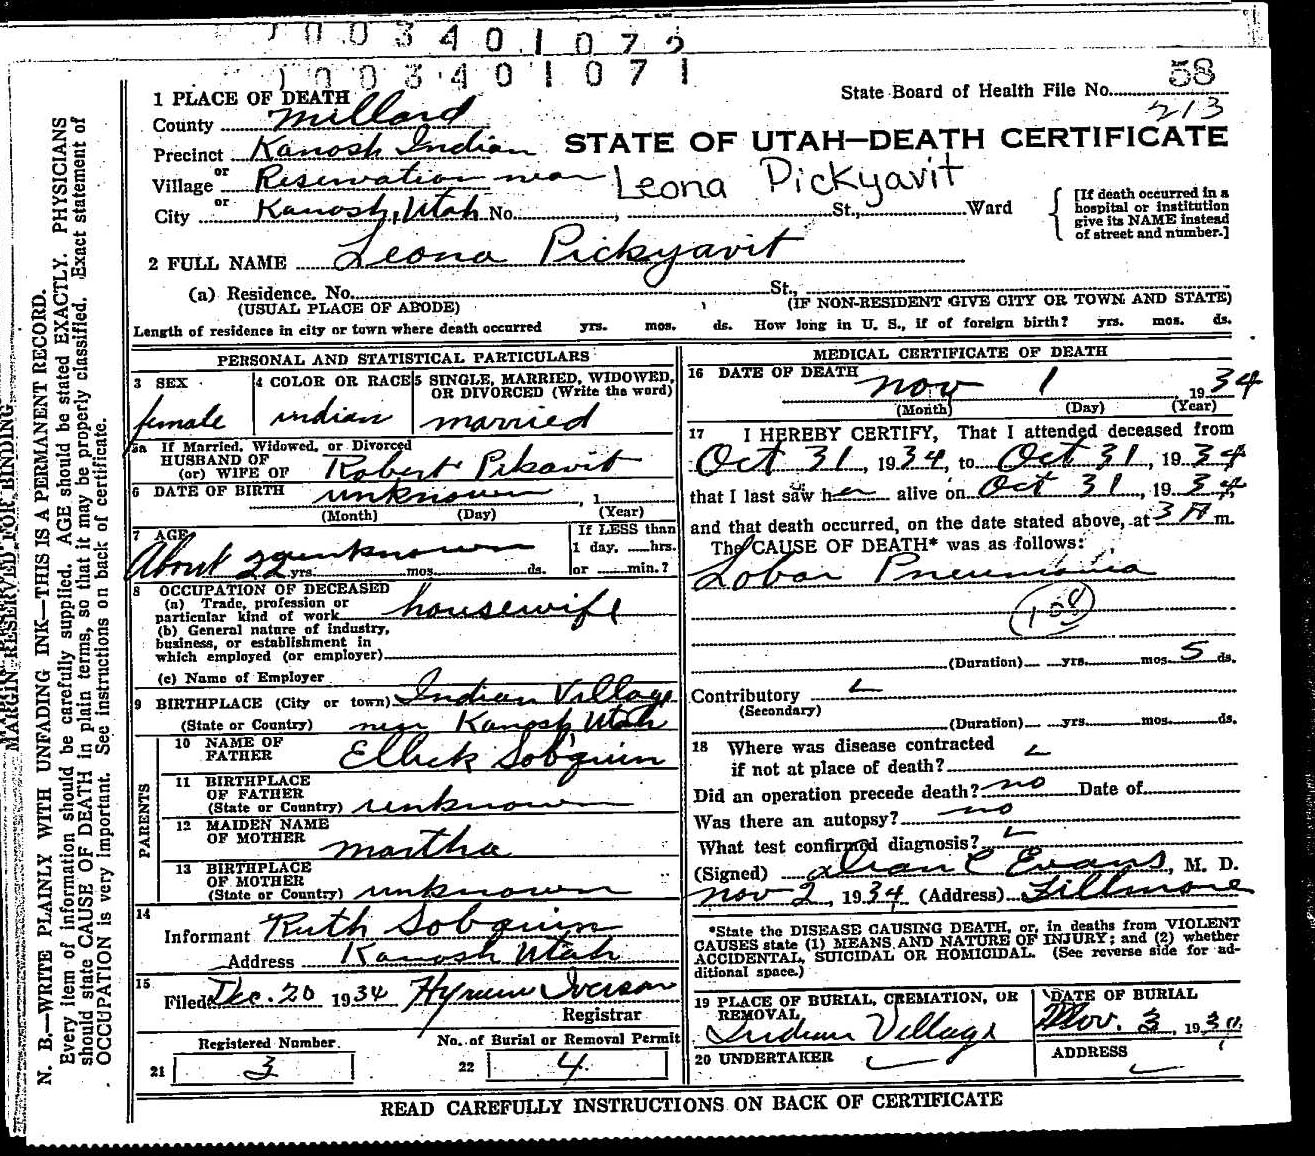 1003401072
1003401071
58
State Board of Health File No. 213
1 PLACE OF DEATH
County Millard
STATE OF UTAH—DEATH CERTIFICATE
Precinct Kanosh Indian
or
Village Reservation near
Leona Pickyavit
or
City Kanosh, Utah No. , St., Ward
[If death occurred in a
hospital or institution
give its NAME instead
of street and number.]
2 FULL NAME Leona Pickyavit
(a) Residence. No. St.,
(USUAL PLACE OF ABODE) (IF NON-RESIDENT GIVE CITY OR TOWN AND STATE)
Length of residence in city or town where death occurred yrs. mos. ds. How long in U. S., if of foreign birth? yrs. mos. ds.
PERSONAL AND STATISTICAL PARTICULARS
3 SEX
female
4 COLOR OR RACE
indian
5 SINGLE, MARRIED, WIDOWED,
OR DIVORCED (Write the word)
married
5a If Married, Widowed, or Divorced
HUSBAND OF
(or) WIFE OF Robert Pikavit
6 DATE OF BIRTH unknown , 1
(Month) (Day) (Year)
7 AGE
About 22 yrs. unknown mos. ds.
If LESS than
1 day, hrs.
or min.?
8 OCCUPATION OF DECEASED
(a) Trade, profession or
particular kind of work housewife
(b) General nature of industry,
business, or establishment in
which employed (or employer)
(c) Name of Employer
9 BIRTHPLACE (City or town) Indian Village
(State or Country) near Kanosh Utah
PARENTS
10 NAME OF
FATHER Elbick Sobquin
11 BIRTHPLACE
OF FATHER
(State or Country) unknown
12 MAIDEN NAME
OF MOTHER martha
13 BIRTHPLACE
OF MOTHER
(State or Country) unknown
14
Informant Ruth Sobquin
Address Kanosh Utah
15
Filed Dec. 20 1934 Hyrum Iverson
Registrar
Registered Number.
21 3
No. of Burial or Removal Permit
22 4
MEDICAL CERTIFICATE OF DEATH
16 DATE OF DEATH
nov 1 1934
(Month) (Day) (Year)
17 I HEREBY CERTIFY, That I attended deceased from
Oct 31, 1934, to Oct 31, 1934
that I last saw her alive on Oct 31, 1934,
and that death occurred, on the date stated above, at 3 A m.
The CAUSE OF DEATH* was as follows:
Lobar Pneumonia
108
(Duration) yrs. mos. 5 ds.
Contributory
(Secondary)
(Duration) yrs. mos. ds.
18 Where was disease contracted
if not at place of death?
Did an operation precede death? no Date of
Was there an autopsy? no
What test confirmed diagnosis?
(Signed) Evans, M. D.
nov 2, 1934 (Address) Fillmore
*State the DISEASE CAUSING DEATH, or, in deaths from VIOLENT
CAUSES state (1) MEANS AND NATURE OF INJURY; and (2) whether
ACCIDENTAL, SUICIDAL OR HOMICIDAL. (See reverse side for ad-
ditional space.)
19 PLACE OF BURIAL, CREMATION, OR
REMOVAL
Indian Village
DATE OF BURIAL
Nov. 3, 1934
20 UNDERTAKER
ADDRESS
READ CAREFULLY INSTRUCTIONS ON BACK OF CERTIFICATE
MARGIN RESERVED FOR BINDING
N. B.—WRITE PLAINLY WITH UNFADING INK—THIS IS A PERMANENT RECORD.
Every item of information should be carefully supplied. AGE should be stated EXACTLY. PHYSICIANS
should state CAUSE OF DEATH in plain terms, so that it may be properly classified. Exact statement of
OCCUPATION is very important. See instructions on back of certificate.